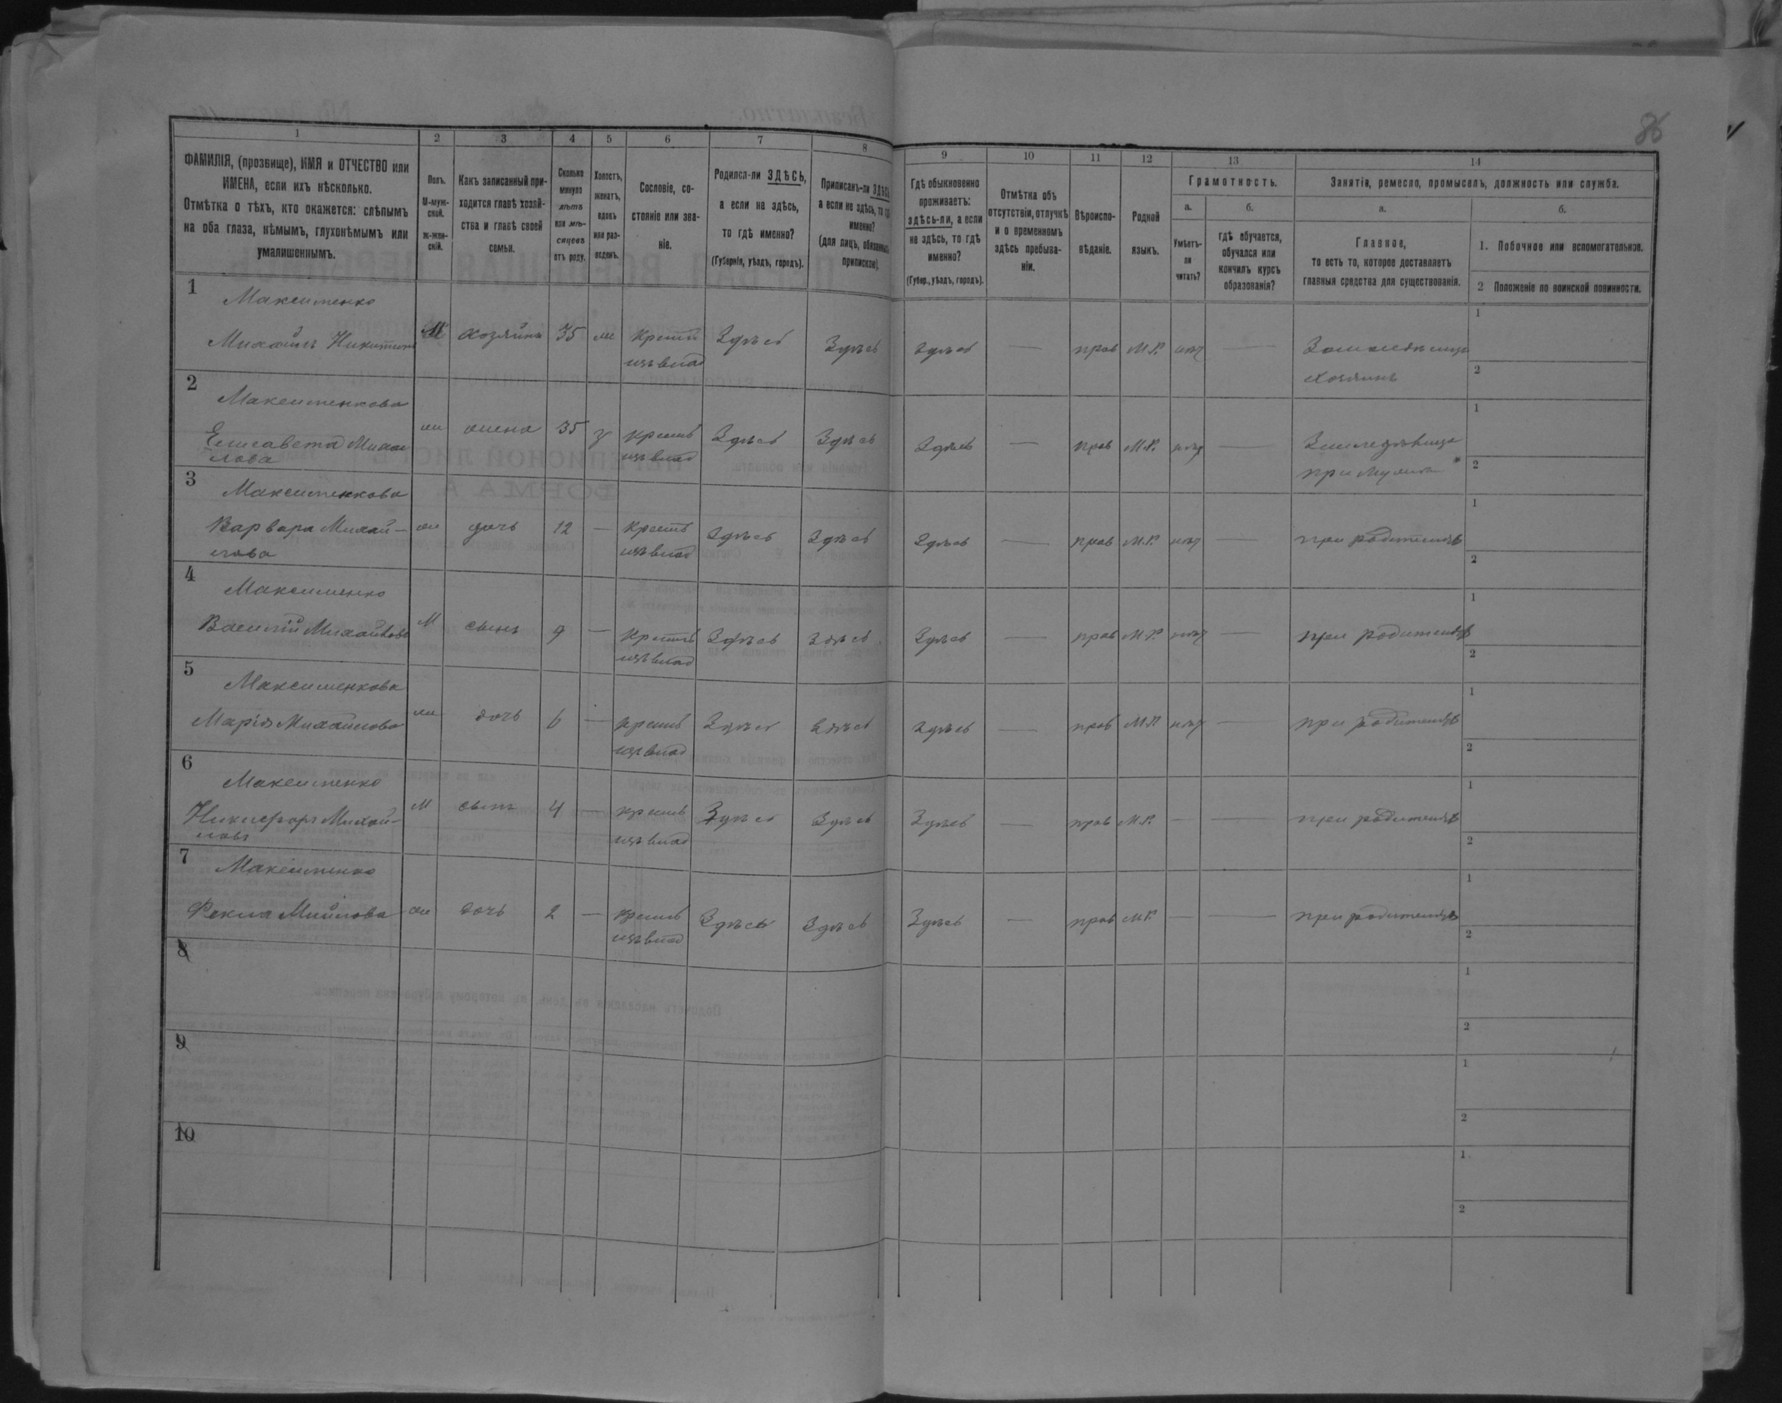 86
1
2
3
4
5
6
7
8
9
10
11
12
13
14
ФАМИЛІЯ, (прозвище), ИМЯ и ОТЧЕСТВО или
ИМЕНА, если ихъ нѣсколько.
Отмѣтка о тѣхъ, кто окажется: слѣпымъ
на оба глаза, нѣмымъ, глухонѣмымъ или
умалишеннымъ.
Полъ.
М-муж-
ской.
ж-жен-
скій.
Какъ записанный при-
ходится главѣ хозяй-
ства и главѣ своей
семьи.
Сколько
минуло
лѣтъ
или мѣ-
сяцевъ
отъ роду.
Холостъ,
женатъ,
вдовъ
или раз-
веденъ.
Сословіе, со-
стояніе или зва-
ніе.
Родился-ли ЗДѢСЬ,
а если не здѣсь,
то гдѣ именно?
(Губернія, уѣздъ, городъ).
Приписанъ-ли ЗДѢСЬ,
а если не здѣсь, то гдѣ
именно?
(для лицъ, обязанныхъ
припискою).
Гдѣ обыкновенно
проживаетъ:
здѣсь-ли, а если
не здѣсь, то гдѣ
именно?
(Губер., уѣздъ, городъ).
Отмѣтка объ
отсутствіи, отлучкѣ
и о временномъ
здѣсь пребыва-
ніи.
Вѣроиспо-
вѣданіе.
Родной
языкъ.
Грамотность.
а.
Умѣетъ-
ли
читать?
б.
гдѣ обучается,
обучался или
кончилъ курсъ
образованія?
Занятіе, ремесло, промыселъ, должность или служба.
а.
Главное,
то есть то, которое доставляетъ
главныя средства для существованія.
б.
1. Побочное или вспомогательное.
2 Положеніе по воинской повинности.
1 Максименко
Михаилъ Никитинъ М хозяинъ 35 ж Крестъ Здѣсь Здѣсь Здѣсь — прав М.Р. нѣт —
изъ влад
хозяинъ
1
2
2 Максименкова
Елисавета Михай жена 35 з Крестъ Здѣсь Здѣсь Здѣсь — прав М.Р. нѣт —
лова изъ влад
при мужѣ
1
2
3 Максименкова
Варвара Михай- ж дочь 12 — Крестъ Здѣсь Здѣсь Здѣсь — прав М.Р. нѣт — при родителяхъ
лова изъ влад
1
2
4 Максименко
Василій Михайловъ М сынъ 9 — Крестъ Здѣсь Здѣсь Здѣсь — прав М.Р. нѣт — при родителяхъ
изъ влад
1
2
5 Максименкова
Марія Михайлова ж дочь 6 — Крестъ Здѣсь Здѣсь Здѣсь — прав М.Р. нѣт — при родителяхъ
изъ влад
1
2
6 Максименко
Никифоръ Михай- М сынъ 4 — Крестъ Здѣсь Здѣсь Здѣсь — прав М.Р. — — при родителяхъ
ловъ изъ влад
1
2
7 Максименко
Фекла ж дочь 2 — Крестъ Здѣсь Здѣсь Здѣсь — прав М.Р. — — при родителяхъ
изъ влад
1
2
8
1
2
9
1
2
10
1
2